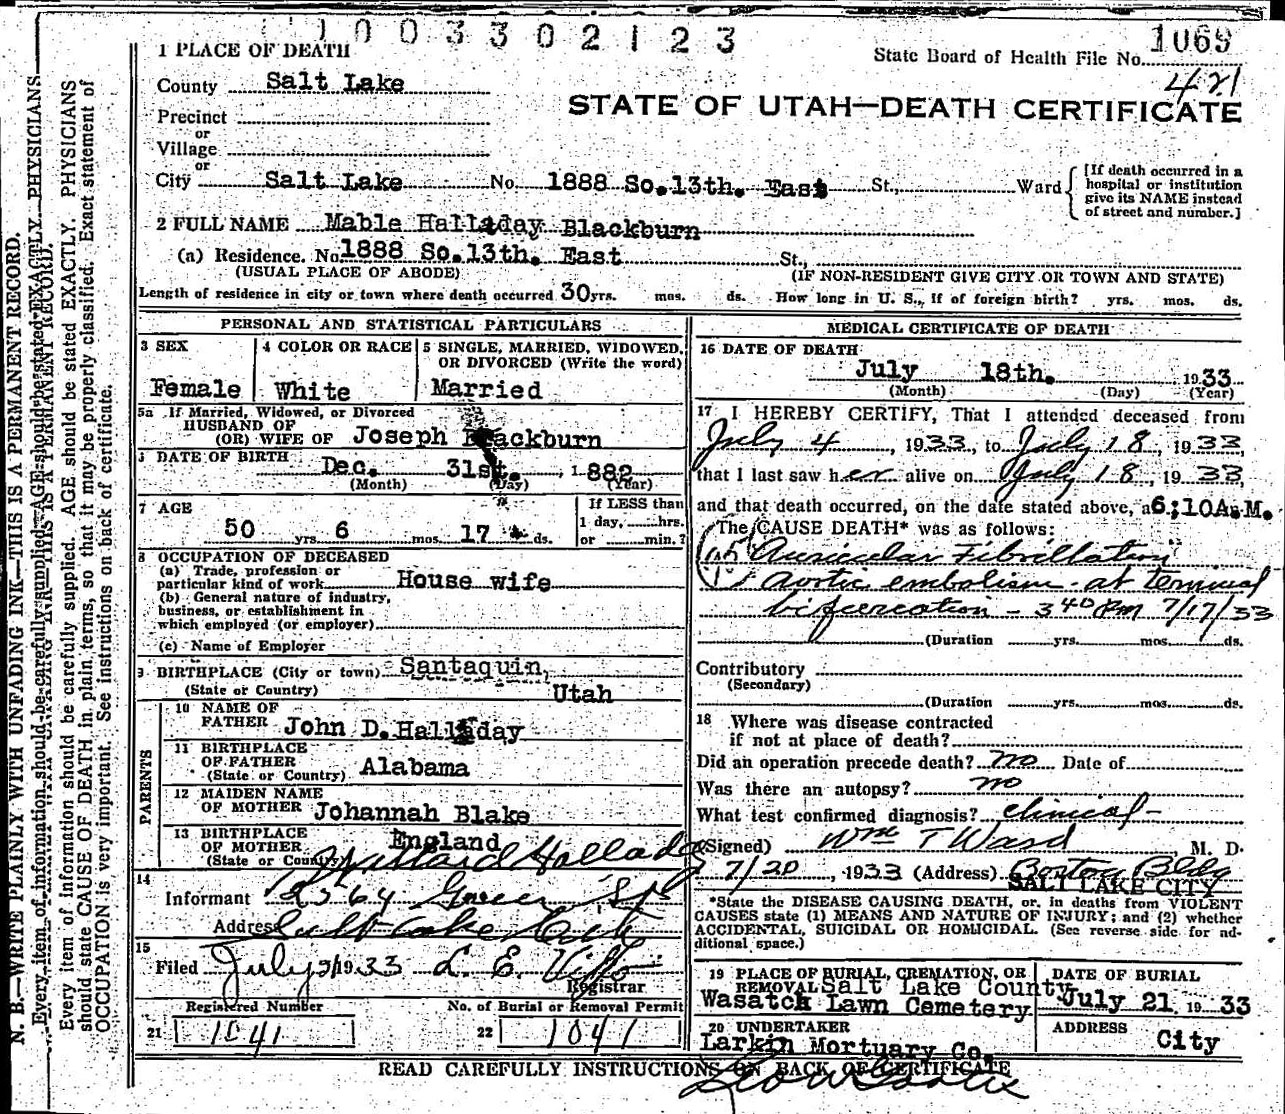 1003302123
1069
State Board of Health File No.
421
STATE OF UTAH—DEATH CERTIFICATE
1 PLACE OF DEATH
County Salt Lake
Precinct
or
Village
or
City Salt Lake No. 1888 So. 13th. East St., Ward
[If death occurred in a
hospital or institution
give its NAME instead
of street and number.]
2 FULL NAME Mable Halladay Blackburn
(a) Residence. No. 1888 So. 13th. East St.,
(USUAL PLACE OF ABODE) (IF NON-RESIDENT GIVE CITY OR TOWN AND STATE)
Length of residence in city or town where death occurred 30 yrs. mos. ds. How long in U. S., if of foreign birth? yrs. mos. ds.
PERSONAL AND STATISTICAL PARTICULARS
3 SEX
Female
4 COLOR OR RACE
White
5 SINGLE, MARRIED, WIDOWED,
OR DIVORCED (Write the word)
Married
5a If Married, Widowed, or Divorced
HUSBAND OF
(OR) WIFE OF Joseph Blackburn
DATE OF BIRTH Dec. 31st., 1882
(Month) (Day) (Year)
7 AGE
50 yrs. 6 mos. 17 ds.
If LESS than
1 day, hrs.
or min.?
8 OCCUPATION OF DECEASED
(a) Trade, profession or
particular kind of work House wife
(b) General nature of industry,
business, or establishment in
which employed (or employer)
(c) Name of Employer
9 BIRTHPLACE (City or town) Santaquin,
(State or Country) Utah
PARENTS
10 NAME OF
FATHER John D. Halladay
11 BIRTHPLACE
OF FATHER
(State or Country) Alabama
12 MAIDEN NAME
OF MOTHER Johannah Blake
13 BIRTHPLACE
OF MOTHER England
(State or Country)
14
Informant Halladay
Address 2564
Salt Lake City
15
Filed July 21 1933 L. E.
Registrar
Registered Number No. of Burial or Removal Permit
21 1041 22 1041
MEDICAL CERTIFICATE OF DEATH
16 DATE OF DEATH
July 18th. 1933
(Month) (Day) (Year)
17 I HEREBY CERTIFY, That I attended deceased from
July 4, 1933, to July 18, 1933,
that I last saw her alive on July 18, 1933,
and that death occurred, on the date stated above, a 6;10A.M.
The CAUSE DEATH* was as follows:
Auricular Fibrillation
aortic embolism - at terminal
bifurcation - 3 40 PM 7/17/33
(Duration yrs. mos. ds.
Contributory
(Secondary)
(Duration yrs. mos. ds.
18 Where was disease contracted
if not at place of death?
Did an operation precede death? no Date of
Was there an autopsy? no
What test confirmed diagnosis? clinical -
(Signed) Wm T Ward M. D.
7/20, 1933 (Address) Boston Bldg
SALT LAKE CITY
*State the DISEASE CAUSING DEATH, or, in deaths from VIOLENT
CAUSES state (1) MEANS AND NATURE OF INJURY; and (2) whether
ACCIDENTAL, SUICIDAL OR HOMICIDAL. (See reverse side for ad-
ditional space.)
19 PLACE OF BURIAL, CREMATION, OR
REMOVAL Salt Lake County
Wasatch Lawn Cemetery
DATE OF BURIAL
July 21 1933
20 UNDERTAKER
Larkin Mortuary Co.
ADDRESS
City
READ CAREFULLY INSTRUCTIONS ON BACK OF CERTIFICATE
N. B.—WRITE PLAINLY WITH UNFADING INK—THIS IS A PERMANENT RECORD.
Every item of information should be carefully supplied. AGE should be stated EXACTLY. PHYSICIANS
Every item of information should be carefully supplied. AGE should be stated EXACTLY. PHYSICIANS
should state CAUSE OF DEATH in plain terms, so that it may be properly classified. Exact statement of
OCCUPATION is very important. See instructions on back of certificate.